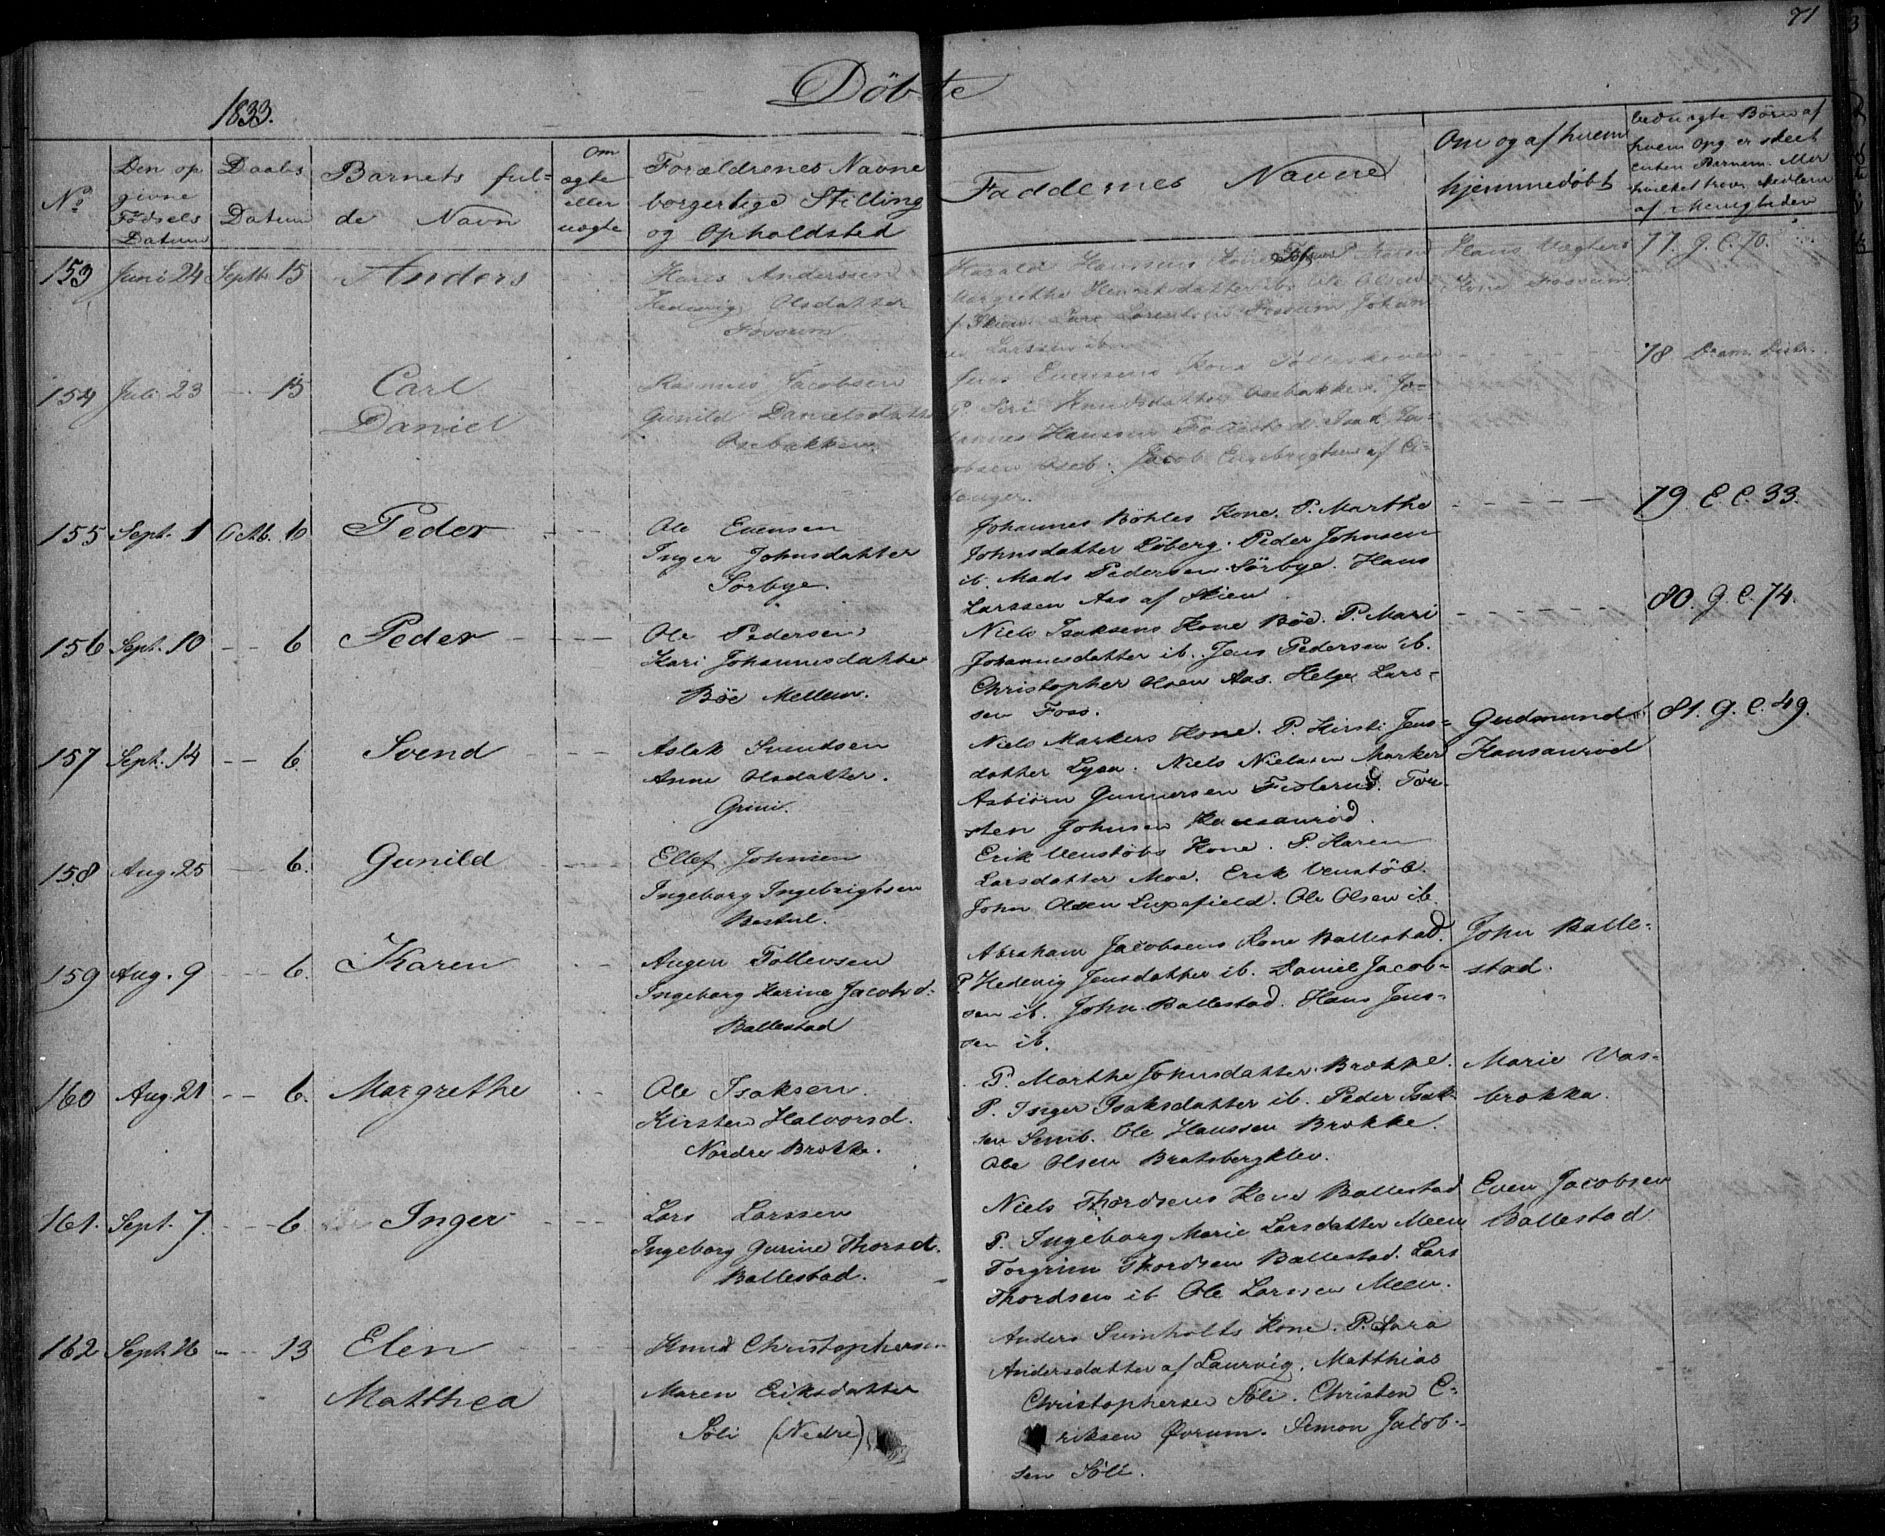 71
Döbte
1833.
No
Den op
givne
Fødsels
Datum
Daabs
Datum
Barnets ful=
de Navn
Om
ægte
eller
uægte
Forældrenes Navne
borgerlige Stilling
og Opholdsted
Faddernes Navne
Om og af hvem
hjemmedøbt
af Menigheden
153 Juni 24 Septb. 15 Anders
Hans Anderssen
Hedevig Olsdatter
Fossum
Harald Hansens Kone Fossum P. Karen
Margrethe Henriksdatter ib. Ole Olsen
af Skien. Lars Fossum Johan
Larssen ibm
Hans Vægters
Kone Fossum
77. g. C. 70.
154 Juli 23 - 15 Carl
Daniel
Rasmus Jacobsen
Gunild Danielsdatter
Osebakken
Jens Evensens Kone
P. Siri Knudsdatter Osebakken. Jo=
hannes Hanssen Follestad. Isak Ja=
cobsen Oseb. Jacob Engebrigtsen af Ei=
danger.
78
155 Sept. 1 Octb. 6 Peder
Ole Evensen
Inger Johnsdatter
Sørbye.
Johannes Bøhles Kone. P. Marthe
Johnsdatter Løberg. Peder Johnsen
ib. Mads Pedersen Sörbye. Hans
Larssen Aas af Skien
79. C. C. 33.
156 Sept. 10 - 6 Peder
Ole Pedersen
Kari Johannesdatter
Böe Mellem.
Niels Isaksens Kone Böe. P. Mari
Johannesdatter ib. Jens Pedersen ib.
Christopher Olsen Aas. Helge Lars=
sen Foss.
80. g. C. 74.
157 Sept. 14 - 6. Svend
Aslak Svendsen
Anne Olsdatter.
Grini.
Niels Markers Kone. P. Kirsti Jens=
datter Lysa. Niels Nielssen Marker
Asbiørn Gunnersen Fidlerud. Tor=
sten Johnsen Hansanrød.
Gudmund
Hansanrød
81. g. C. 49.
158 Aug. 25 - 6. Gunild
Ellef Johnsen
Ingeborg Ingebrigtsen
Bestul.
Erik Venstøbs Kone. P. Karen
Larsdatter Moe. Erik Venstöb.
John Olsen Luxefield. Ole Olsen ib.
159 Aug. 9 - 6. Karen
Augen Tollevsen
Ingeborg Karine Jacobsd:
Ballestad
Abraham Jacobsens Kone Ballestad.
P. Hedevig Jensdatter ib. Daniel Jacob=
sen ib. John Ballestad. Hans Jens=
sen ib.
John Balle=
stad.
160 Aug. 21 - 6. Margrethe
Ole Isaksen.
Kirsten Halvorsd.
Nordre Brække.
P. Marthe Johnsdatter Brække.
P. Inger Isaksdatter ib. Peder Isak=
sen Semb. Ole Hanssen Brække.
Ole Olsen Bratsbergklev.
Marie Vas=
brækka.
161. Sept. 7. - 6. Inger
Lars Larssen
Ingeborg Gurine Thorsd.
Ballestad.
Niels Thordsens Kone Ballestad
P. Ingeborg Marie Larsdatter Meen
Torgrim Thordsen Ballestad. Lars
Thordsen ib Ole Larssen Meen.
Even Jacobsen
Ballestad
162 Sept. 16 - 13 Elen
Matthea
Knud Christophersen
Maren Eriksdatter
Søli (Nedre)
Anders Svinholts Kone. P. Sara
Andersdatter af Laurvig. Matthias
Christophersen Søli. Christen E=
riksen Øvrum. Simon Jacob=
sen Söli.